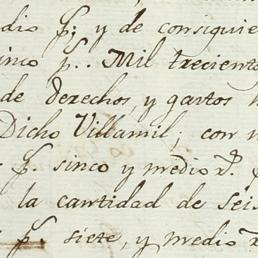 dio p.s y de consiguie
inco p.s. Mil trecient
de derechos, y gastos
Dicho Villamil; con
p.s sinco y medio r.s
la cantidad de seis
p.s siete, y medio r